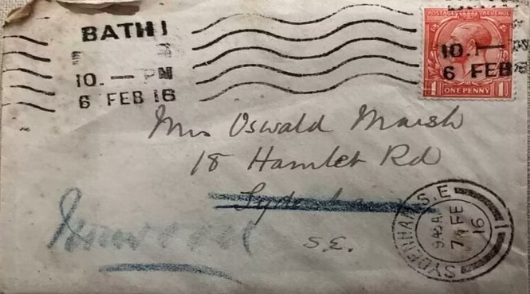 BATH
10. — PM
6 FEB 16
10 —
6 FEB
ONE PENNY
Mrs Oswald Marsh
18 Hamlet Rd
Sydenham
S.E.
SYDENHAM. S.E.
7 FE
16